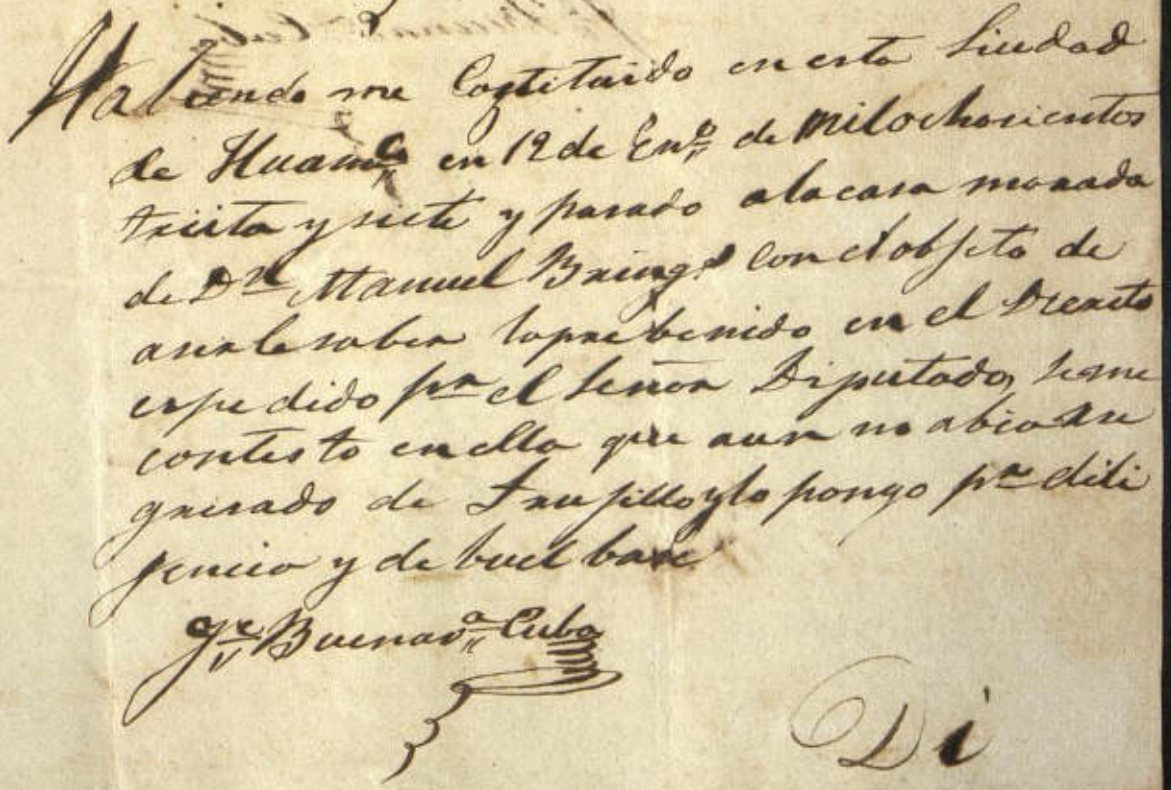 Habiendo me Costituido en esta Siudad
de Huamᵃ en 12 de Enº de milochosientos
treita y siete y pasado alacasa morada
de Dⁿ Manuel Brings con elobjeto de
aserlesaber loprebenido en el Decreto
espedido pr el Señor Diputado, seme
contesto enella que aun no abia Re
gresado de Trujillo ylo pongo pr dili
jencia y de buelbase
Buenavª Cuba
Di